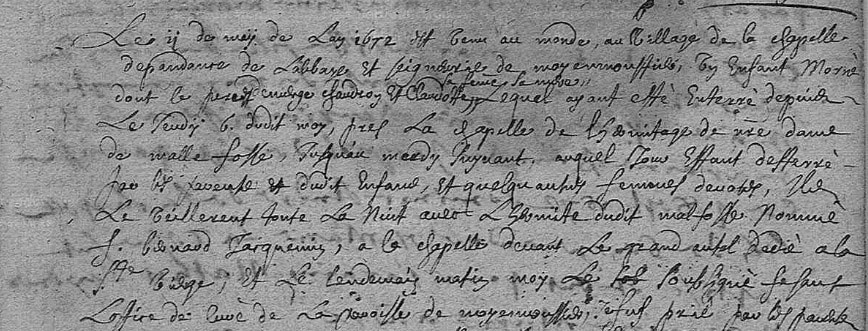 Le ii de may de Lan 1672 est venu au monde, au village de la chapelle
dependance de Labbaye et seigneurie de moyenmoustier, un Enfant Morné
dont le pere est demenge chaudron et Claudotte sa femme la mere, Lequel ayant esté Enterré depuis
Le Jeudy 6. dudit moy, pres La chapelle de Lhermitage de nre dame
de malle fosse, Jusquau mardy suyvant, auquel Jour Estant defferré
par les parents dudit Enfant, et quelquautres femmes devotes, Ils
Le veillerent toute La Nuit avec L'hermite dudit malfosse Nommé
f. bernard Jacquemin, a la chapelle devant Le grand autel dedié a la
Ste vierge, et Le Lendemain matin moy Le soubsigné fesant
Loffice de curé de La paroisse de moyenmoustier, Jefus prié par les parents